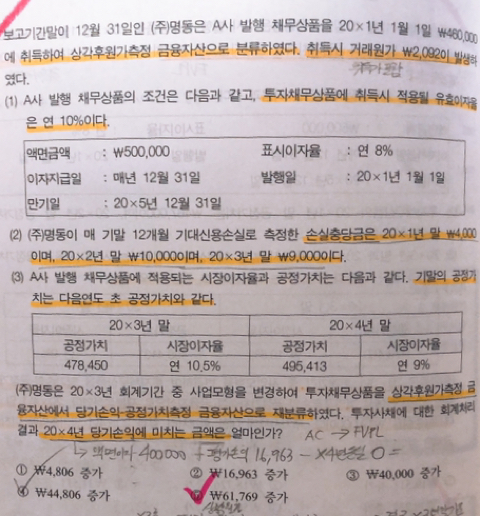 보고기간말이 12월 31일인 (주)명동은 A사 발행 채무상품을 20×1년 1월 1일 ₩460,000
에 취득하여 상각후원가측정 금융자산으로 분류하였다. 취득시 거래원가 ₩2,092이 발생하
였다.
(1) A사 발행 채무상품의 조건은 다음과 같고, 투자채무상품에 취득시 적용될 유효이자율
은 연 10%이다.
액면금액 : ₩500,000 표시이자율 : 연 8%
이자지급일 : 매년 12월 31일 발행일 : 20×1년 1월 1일
만기일 : 20×5년 12월 31일
(2) (주)명동이 매 기말 12개월 기대신용손실로 측정한 손실충당금은 20×1년 말 ₩4,000
이며, 20×2년 말 ₩10,000이며, 20×3년 말 ₩9,000이다.
(3) A사 발행 채무상품에 적용되는 시장이자율과 공정가치는 다음과 같다. 기말의 공정가
치는 다음연도 초 공정가치와 같다.
20×3년 말 20×4년 말
공정가치 시장이자율 공정가치 시장이자율
478,450 연 10,5% 495,413 연 9%
(주)명동은 20×3년 회계기간 중 사업모형을 변경하여 투자채무상품을 상각후원가측정 금
융자산에서 당기손익-공정가치측정 금융자산으로 재분류하였다. 투자사채에 대한 회계처리
결과 20×4년 당기손익에 미치는 금액은 얼마인가? AC → FVPL
액면이자 40000 + 평가손익 16,963 - 0 =
① ₩4,806 증가 ② ₩16,963 증가 ③ ₩40,000 증가
④ ₩44,806 증가 ₩61,769 증가